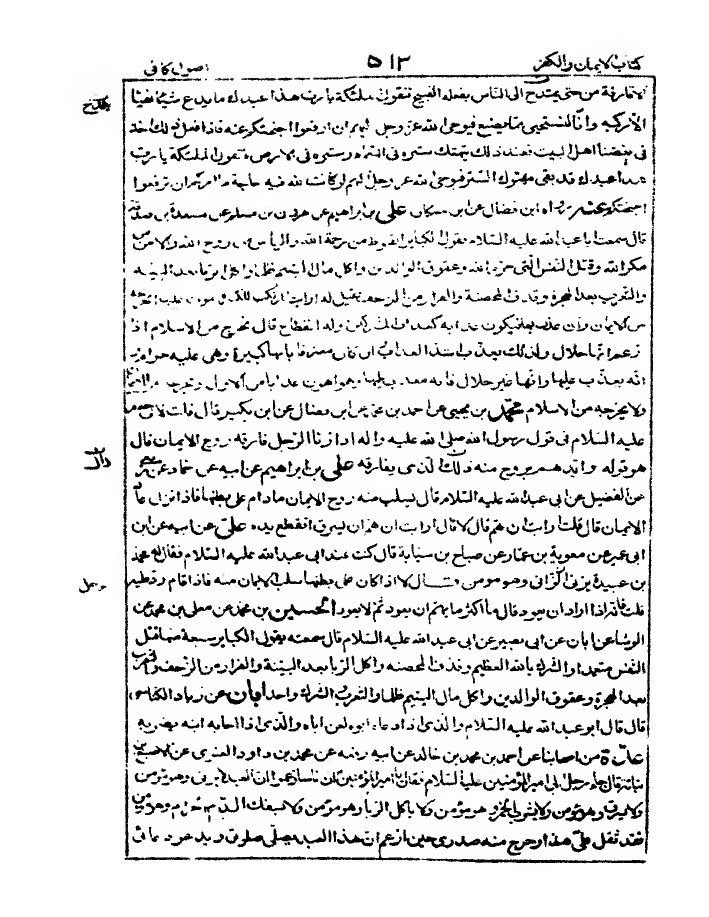 كتاب الايمان والكفر ٥١٢ اصول كافى
الا قارفه من حتى يمتدح الى الناس بفعله القبيح فتقول الملئكة يا رب هذا عبدك ما يدع شيئا
الا ركبه وانا لنستحيى مما يصنع فيوحى الله عز وجل اليهم ان ارفعوا اجنحتكم عنه فاذا فعل ذلك اخذ
فى بغضنا اهل البيت فعند ذلك ينهتك ستره فى السماء وستره فى الارض فتقول الملئكة يا رب
هذا عبدك قد بقى مهتوك الستر فيوحى الله عز وجل اليهم لو كانت لله فيه حاجة ما امركم ان ترفعوا
اجنحتكم عنه ورواه ابن فضال عن ابن مسكان على بن ابراهيم عن هرون بن مسلم عن مسعدة بن صدقة
قال سمعت ابا عبد الله عليه السلام يقول الكباير القنوط من رحمة الله والياس من روح الله والامن من
مكر الله وقتل النفس التى حرم الله وعقوق الوالدين واكل مال اليتيم ظلما واكل الربا بعد البينه
والتعرب بعد الهجرة وقذف المحصنة والفرار من الزحف فقيل له ارايت المرتكب للكبيرة يموت عليها اتخرجه
من الايمان وان عذب بها فيكون عذابه كعذاب المشركين وله انقطاع قال يخرج من الاسلام اذا
زعم انها حلال ولذلك يعذب اشد العذاب وان كان معترفا بانها كبيرة وهى عليه حرام
انه يعذب عليها وانها غير حلال فانه معذب عليها وهو اهون عذابا من الاول ويخرجه من الايمان
ولا يخرجه من الاسلام محمد بن يحيى عن احمد بن محمد عن ابن فضال عن ابن بكير قال قلت لابى جعفر
عليه السلام فى قول رسول الله صلى الله عليه واله اذا زنا الرجل فارقه روح الايمان قال
هو قوله وايدهم بروح منه ذلك الذى يفارقه على بن ابراهيم عن ابيه عن حماد عن ربعى
عن الفضيل عن ابى عبد الله عليه السلام قال يسلب منه روح الايمان مادام على بطنها فاذا نزل عاد
الايمان قال قلت ارايت ان هم قال لا قال ارايت ان هم ان يسرق اتقطع يده على عن ابيه عن ابن
ابى عمير عن معوية بن عمار عن صباح بن سيابة قال كنت عند ابى عبد الله عليه السلام فقال له محمد
بن عبيدة يزنى الزانى وهو مومن قال لا اذا كان على بطنها سلب الايمان منه فاذا قام رد عليه
قلت فانه اذا اراد ان يعود قال ما اكثر ما يهم ان يعود ثم لا يعود الحسين بن محمد عن معلى بن محمد عن
الوشا عن ابان عن ابى بصير عن ابى عبد الله عليه السلام قال سمعته يقول الكباير سبعة منها قتل
النفس متعمدا والشرك بالله العظيم وقذف المحصنه واكل الربا بعد البينة والفرار من الزحف والتعرب
بعد الهجرة وعقوق الوالدين واكل مال اليتيم ظلما والتعرب والشرك واحد ابان عن زياد الكناسى
قال قال ابو عبد الله عليه السلام والذى اذا دعاه ابوه لعن اباه والذى اذا اجابه ابنه يضربه
عدة من اصحابنا عن احمد بن محمد بن خالد عن ابيه رفعه عن محمد بن داود الغنوى عن الاصبغ بن
نباتة قال جاء رجل الى امير المؤمنين عليه السلام فقال يا امير المؤمنين ان ناسا زعموا ان العبد لا يزنى وهو مؤمن
ولا يسرق وهو مؤمن ولا يشرب الخمر وهو مؤمن ولا ياكل الربا وهو مؤمن ولا يسفك الدم الحرام وهو مؤمن
فقد ثقل على هذا وحرج منه صدرى حين ازعم ان هذا العبد يصلى صلوتى ويدعو دعائى